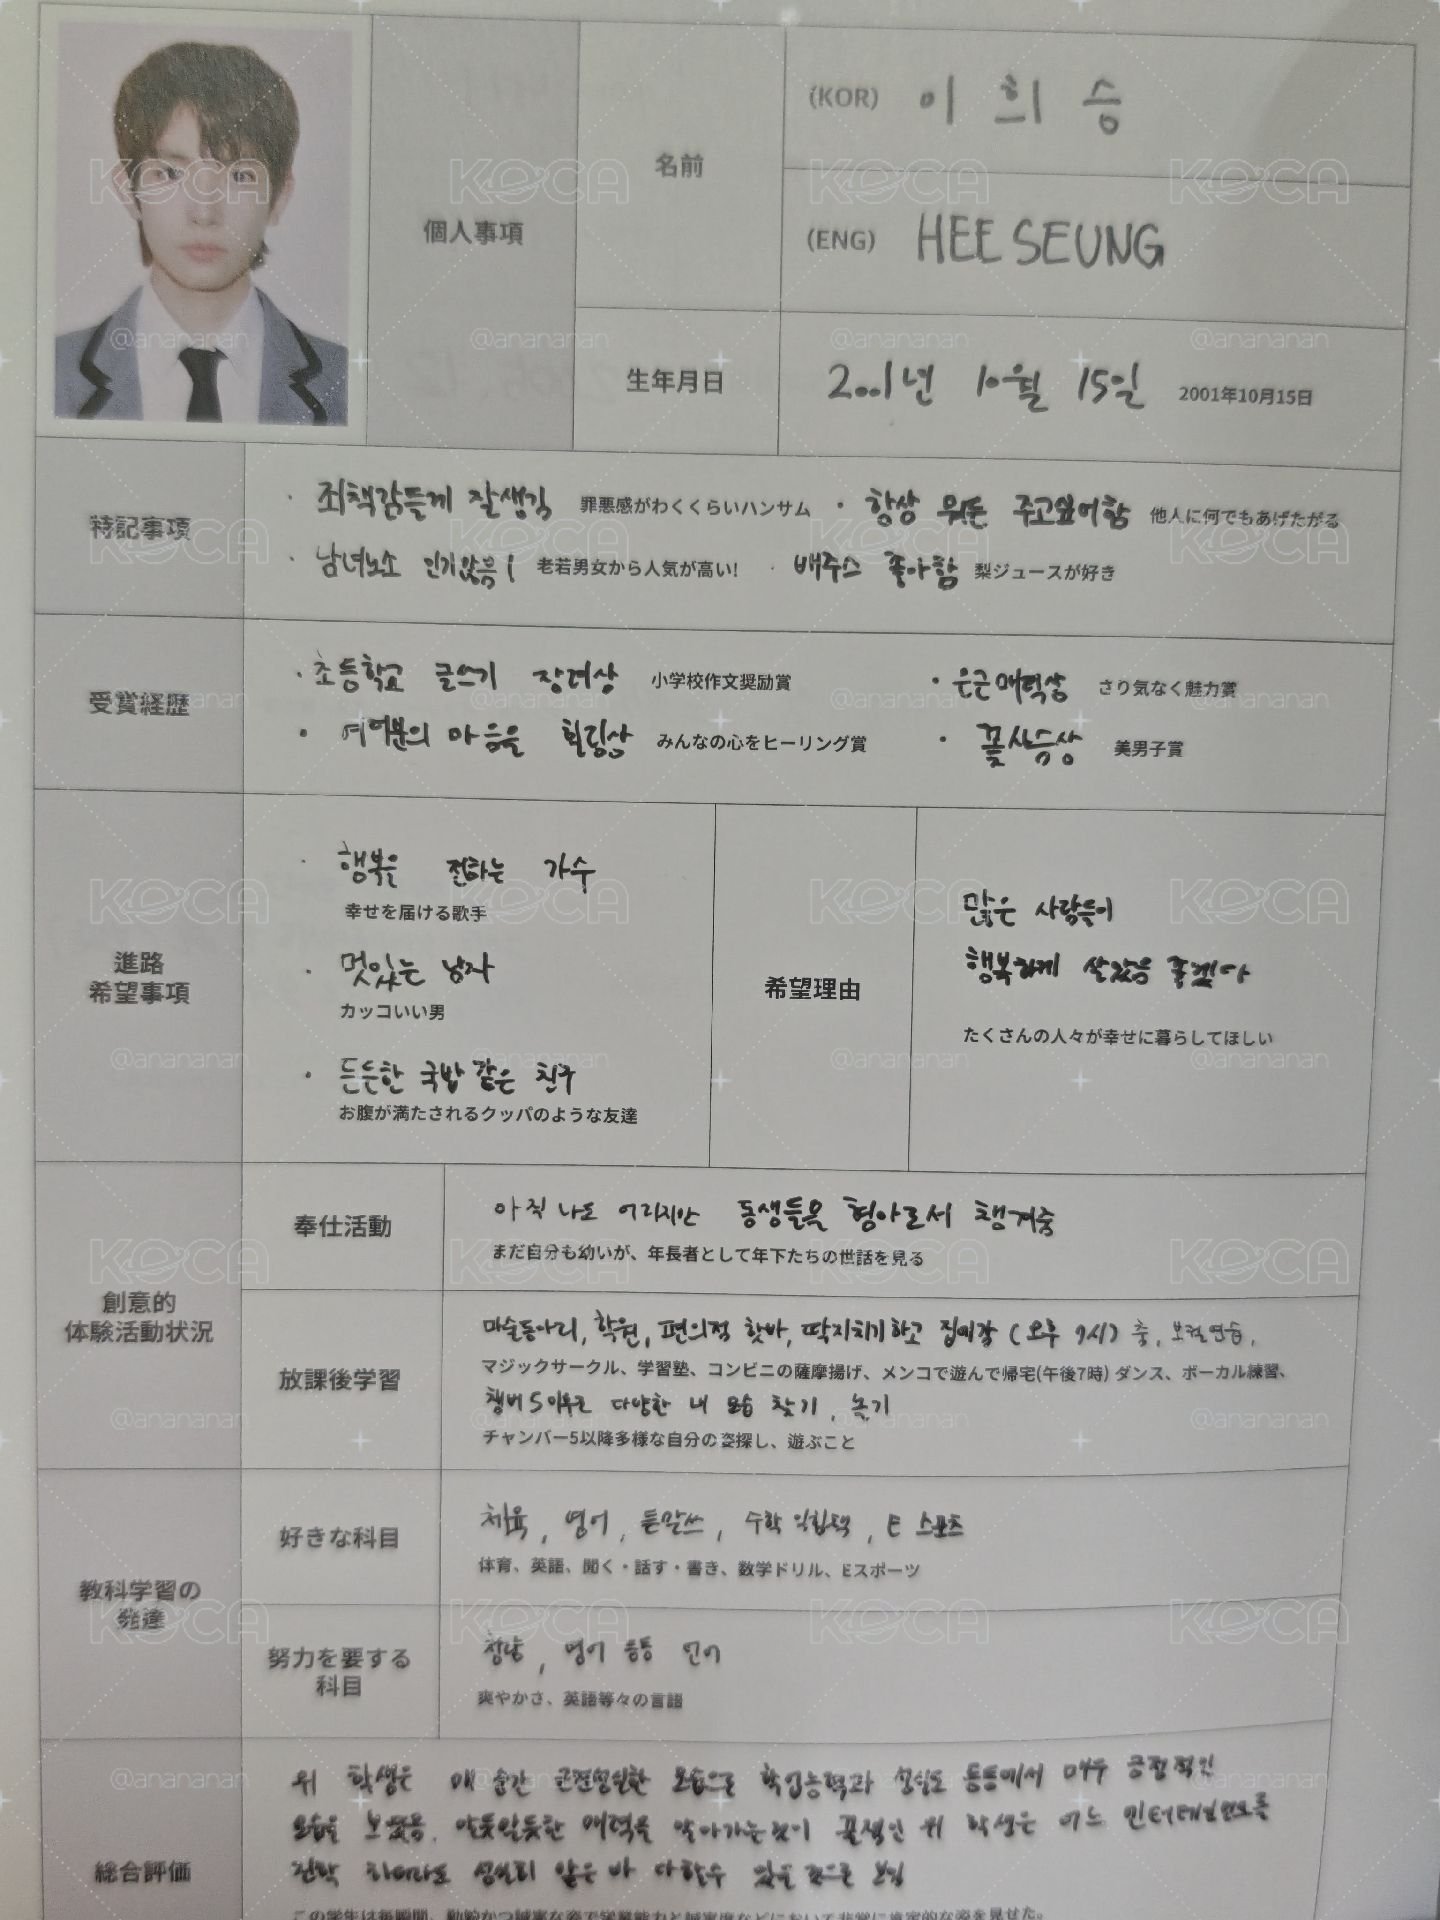 個人事項
名前
(KOR) 이희승
(ENG) HEESEUNG
生年月日
2001년 10월 15일 2001年10月15日
特記事項
· 죄책감들게 잘생김 罪悪感がわくくらいハンサム · 항상 뭐든 주고싶어함 他人に何でもあげたがる
· 남녀노소 인기많음! 老若男女から人気が高い! · 배주스 좋아함 梨ジュースが好き
受賞経歴
· 초등학교 글쓰기 장려상 小学校作文奨励賞 · 은근매력상 さり気なく魅力賞
· 여러분의 마음을 힐링상 みんなの心をヒーリング賞 · 꽃사슴상 美男子賞
進路
希望事項
· 행복을 전하는 가수
幸せを届ける歌手
· 멋있는 남자
カッコいい男
· 든든한 국밥 같은 친구
お腹が満たされるクッパのような友達
希望理由
많은 사람들이
행복하게 살았음 좋겠다
たくさんの人々が幸せに暮らしてほしい
創意的
体験活動状況
奉仕活動
아직 나도 어리지만 동생들을 형아로서 챙겨줌
まだ自分も幼いが、年長者として年下たちの世話を見る
放課後学習
마술동아리, 학원, 편의점 핫바, 딱지치기하고 집에감 (오후 7시) 춤, 보컬연습,
マジックサークル、学習塾、コンビニの薩摩揚げ、メンコで遊んで帰宅(午後7時) ダンス、ボーカル練習、
챔버5이후로 다양한 내 모습 찾기, 놀기
チャンバー5以降多様な自分の姿探し、遊ぶこと
教科学習の
発達
好きな科目
체육, 영어, 듣말쓰, 수학익힘책, E 스포츠
体育、英語、聞く・話す・書き、数学ドリル、Eスポーツ
努力を要する
科目
청량, 영어 등등 언어
爽やかさ、英語等々の言語
総合評価
위 학생은 매 순간 근면성실한 모습으로 학업능력과 성실도 등등에서 매우 긍정적인
모습을 보였음. 알듯말듯한 매력을 알아가는것이 꿀잼인 위 학생은 어느
진학 하더라도 성실히 맡은 바 다할수 있을 것으로 보임
この学生は毎瞬間、勤勉かつ誠実な姿で学業能力と誠実度などにおいて非常に肯定的な姿を見せた。
KOCA
@anananan